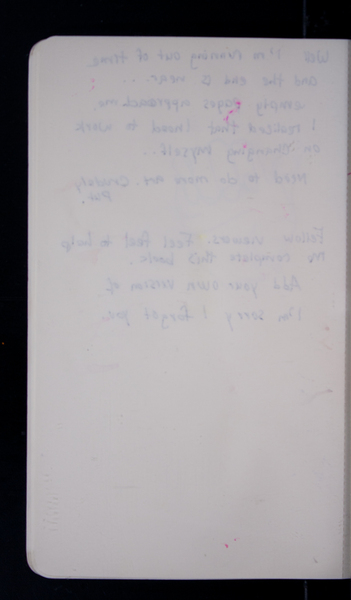 Well I'm running out of time
and the end is near...
empty pages approach me.
I realized that I need to work
on changing myself..
Need to do more not
put.
Fellow viewers. Feel feel to help
me complete this book.
Add your own version of
I'm sorry I forgot you.